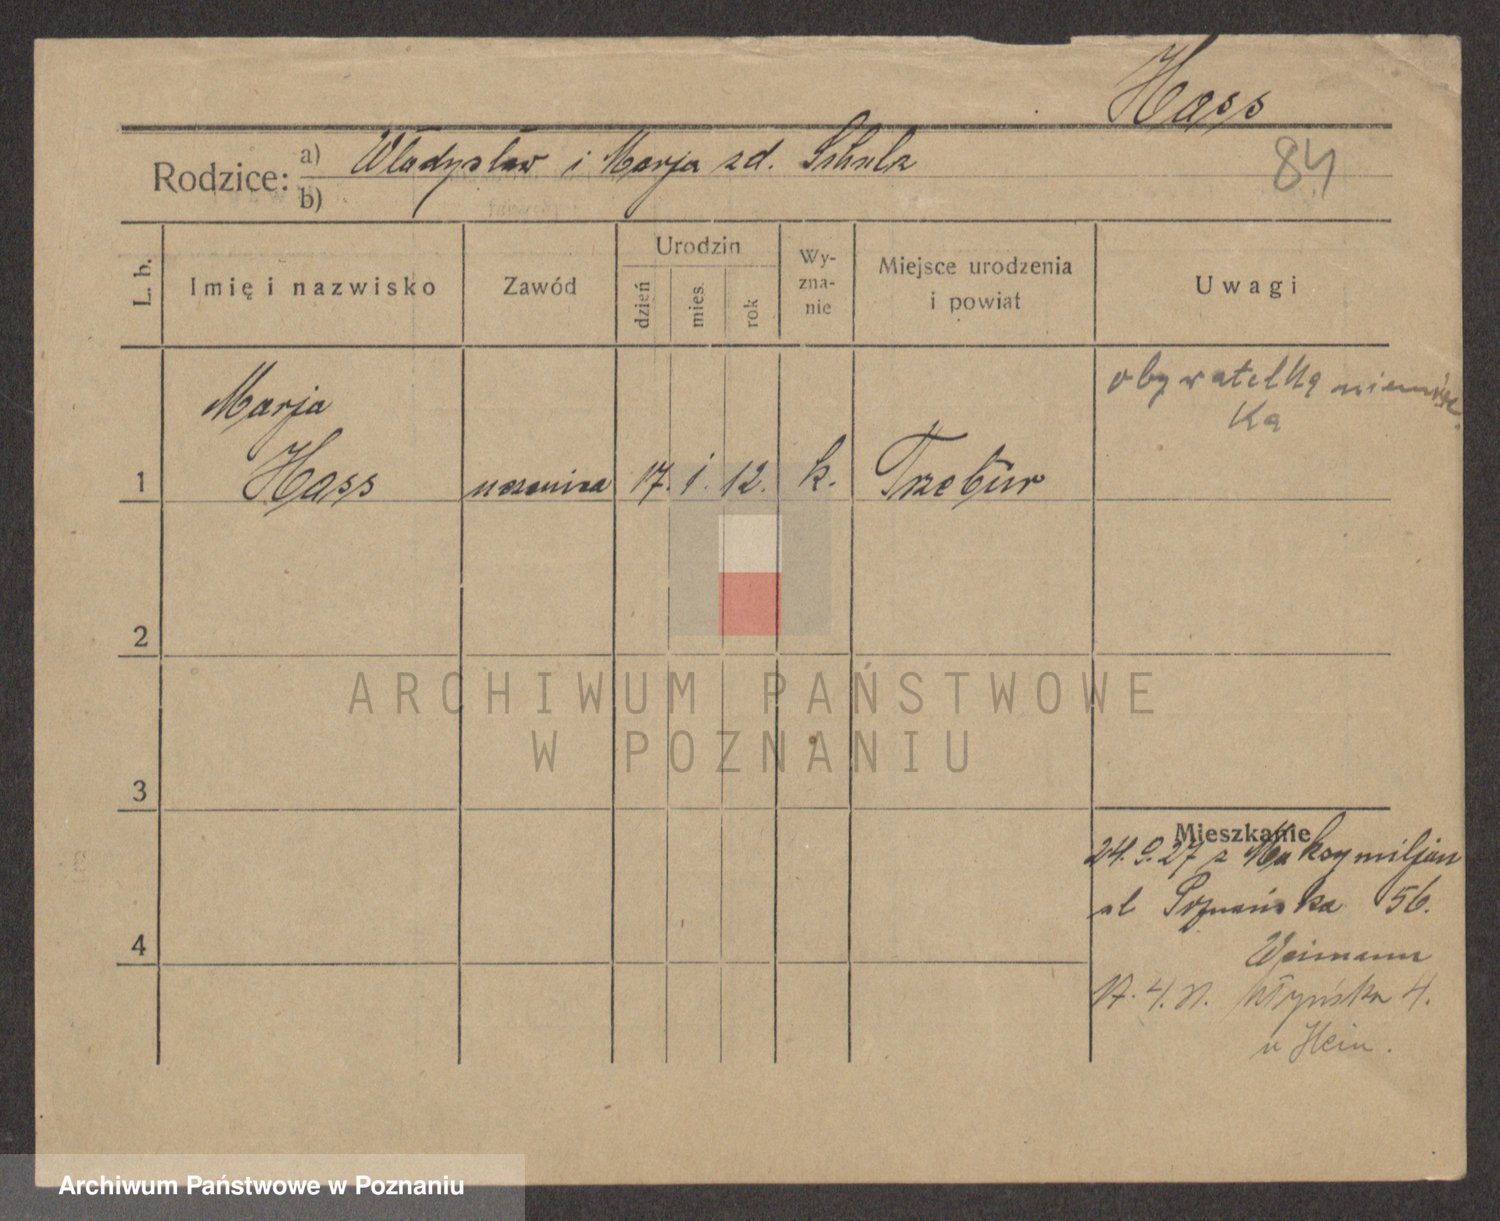 Hass
Rodzice: a) Władysław i Marja zd. Schulz
b)
84
L. b. Imię i nazwisko Zawód Urodzin dzień mies. rok Wy-zna-nie Miejsce urodzenia i powiat Uwagi
obywatelka niemiec
ka
Marja
1 Hass uczenica 17. 1. 12. k. Trzebur
2
ARCHIWUM PAŃSTWOWE
W POZNANIU
3
Mieszkanie
24. 9. 27 z Maksymiljan
ul Poznańska 56.
Weimann
17. 4. 31. 4.
u Hein.
4
Archiwum Państwowe w Poznaniu